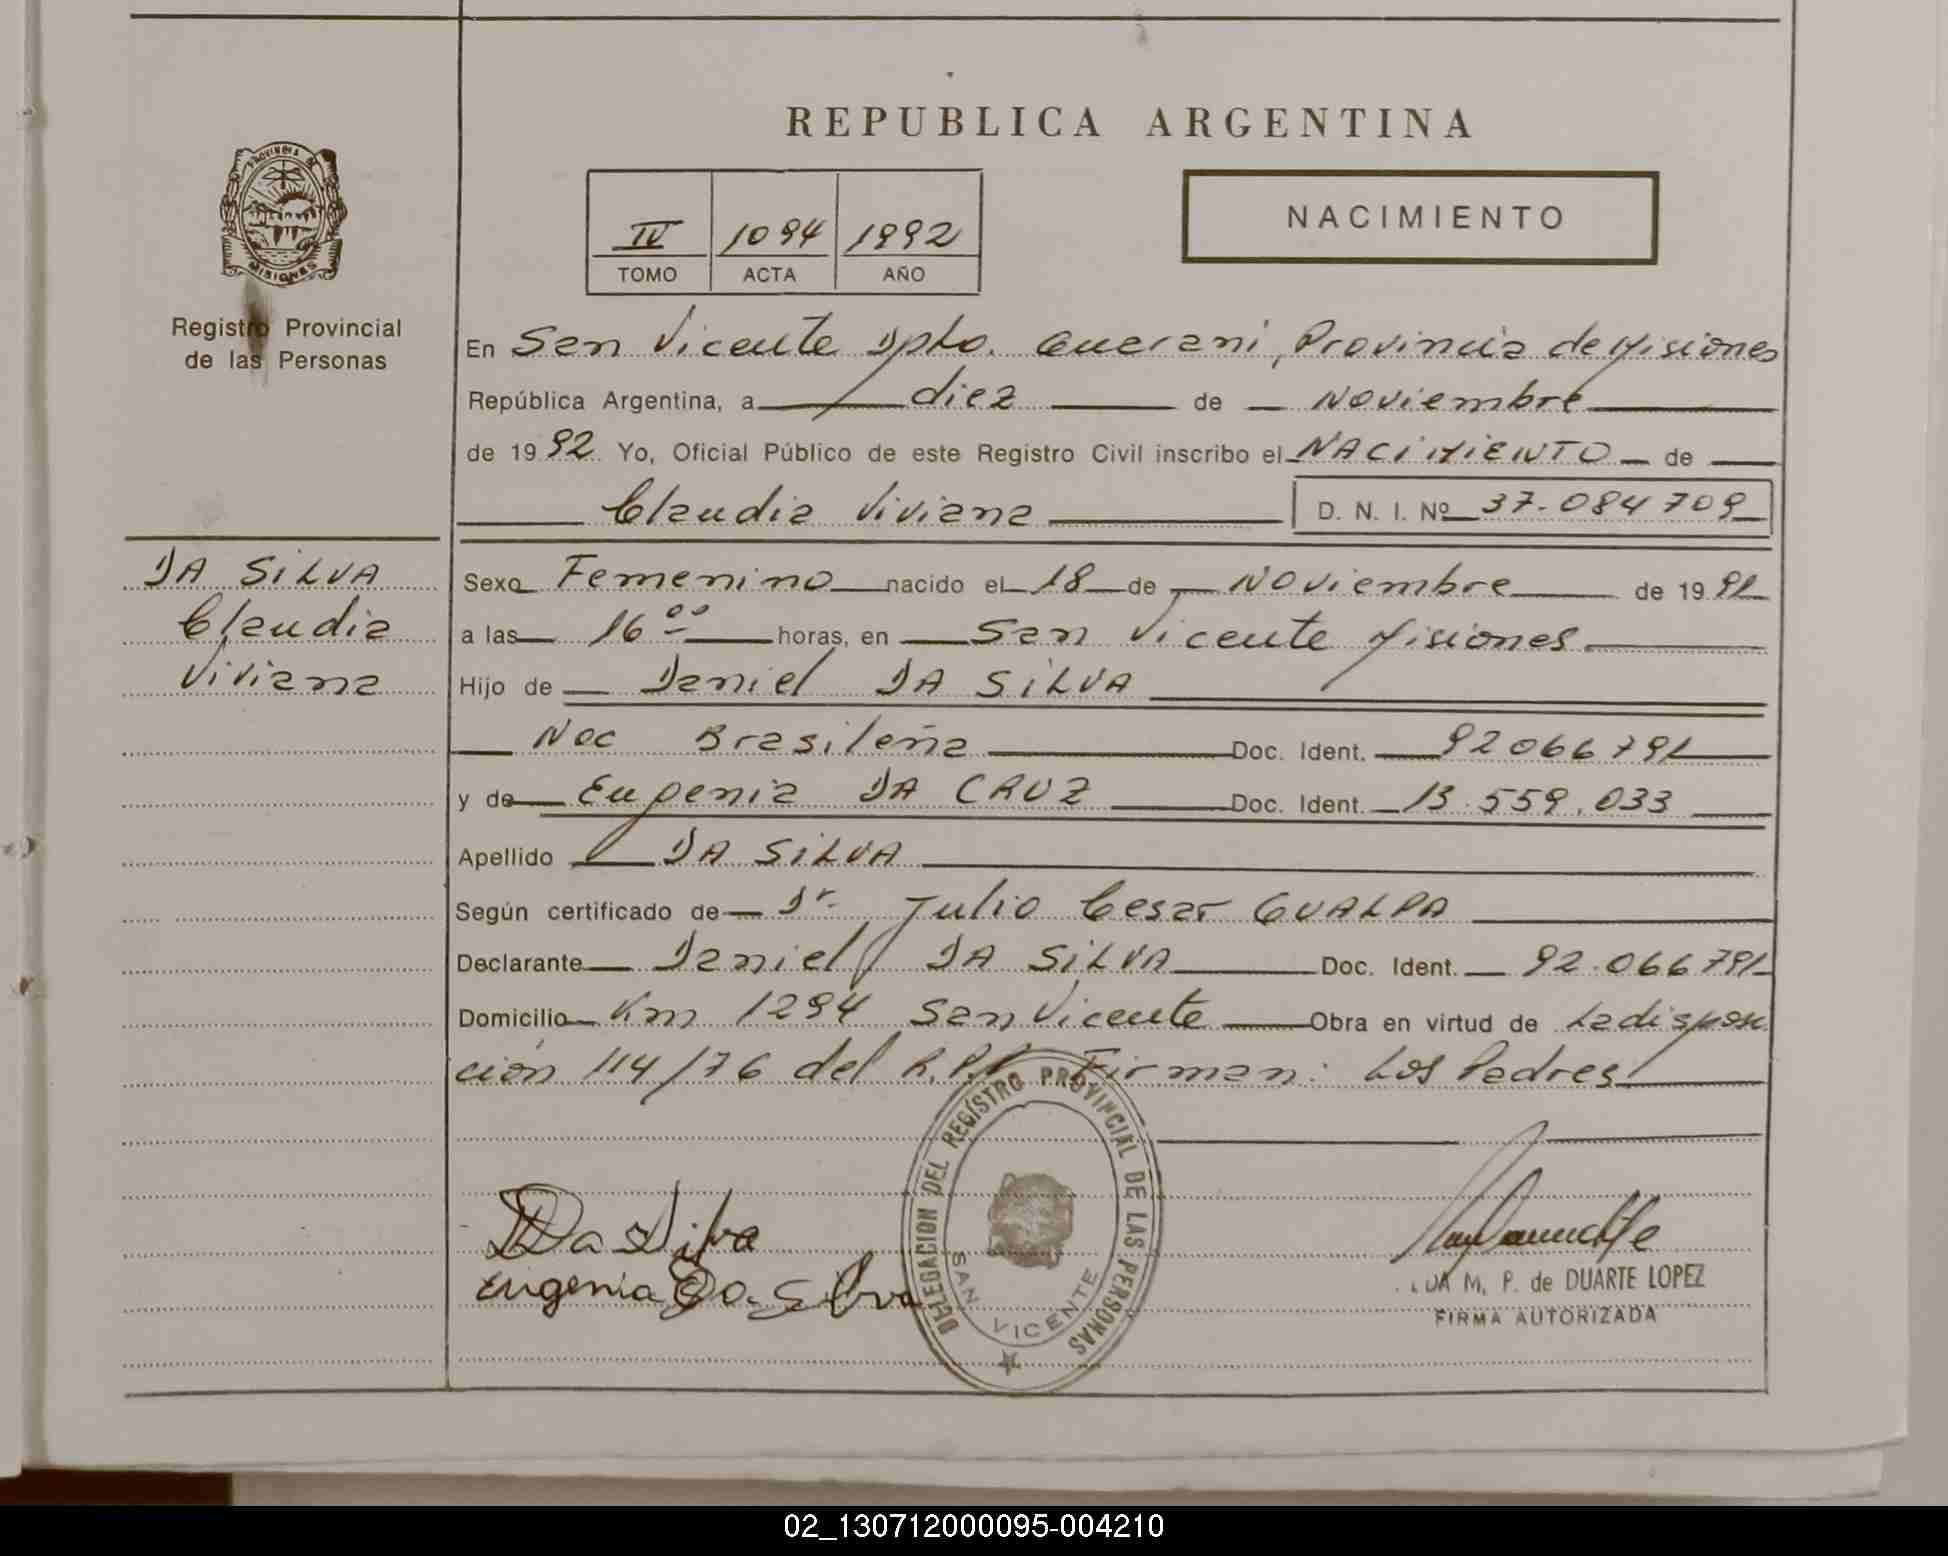 REPUBLICA ARGENTINA
PROVINCIA DE
MISIONES
Registro Provincial
de las Personas
IV 1094 1992
TOMO ACTA AÑO
NACIMIENTO
En San Vicente Dpto. Guarani, Provincia de Misiones
República Argentina, a diez de Noviembre
de 1992 Yo, Oficial Público de este Registro Civil inscribo el NACIMIENTO de
Claudia Viviana D. N. I. Nº 37.084709
DA SILVA
Claudia
Viviana
Sexo Femenino nacido el 18 de Noviembre de 1991
a las 16 oo horas, en San Vicente Misiones
Hijo de Daniel DA SILVA
Nac Brasileña Doc. Ident. 92066791
y de Eugenia DA CRUZ Doc. Ident. 13.559.033
Apellido DA SILVA
Según certificado de Dr. Julio Cesar GUALPA
Declarante Daniel DA SILVA Doc. Ident. 92.066791
Domicilio Km 1294 San Vicente Obra en virtud de La disposi
ción 114/76 del R.P.P. Firman: Los Padres
DELEGACION DEL REGISTRO PROVINCIAL DE LAS PERSONAS
SAN VICENTE
Da Silva
Eugenia Da Silva
M. P. de DUARTE LOPEZ
FIRMA AUTORIZADA
02_130712000095-004210